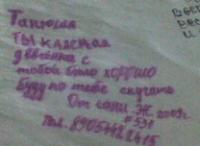 Танюшка
Ты классная
девчёнка с
тобой было хорошо
буду по тебе скучать
От саши Ж 2009г.
# 531
Тел. 89054422415
Ввер
рес
и